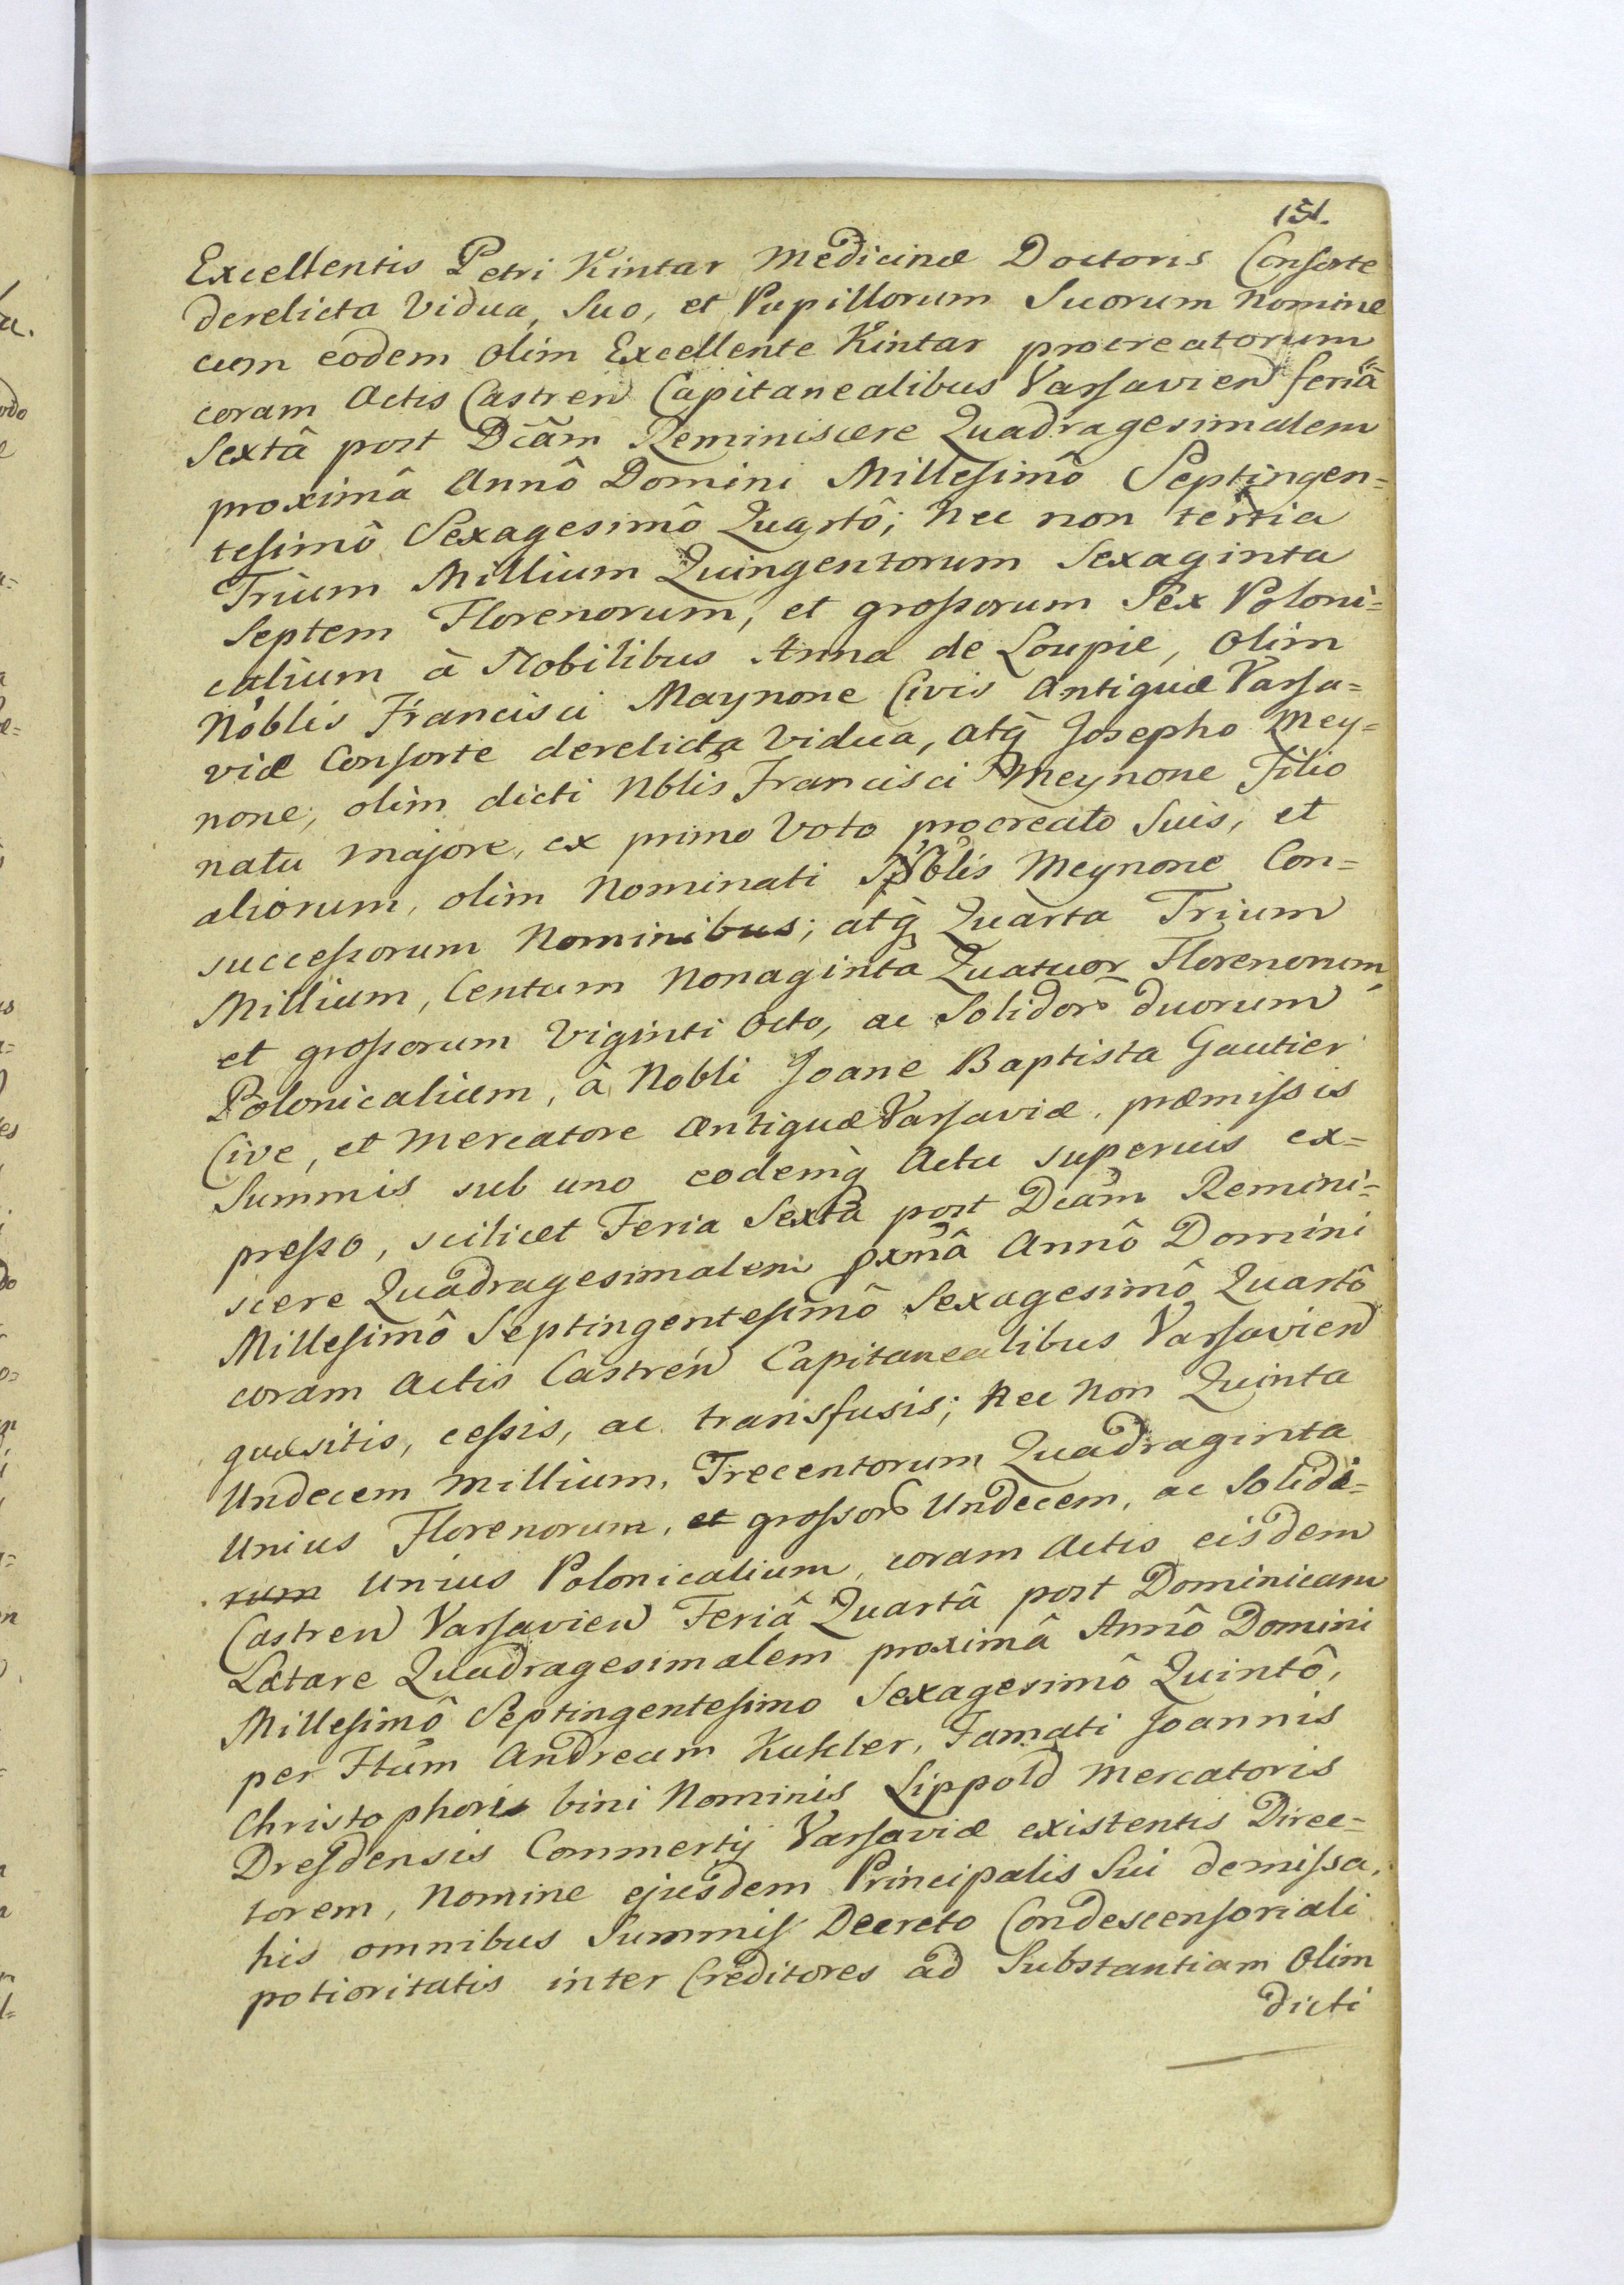 151.
Excellentis Petri Kintar Medicinæ Doctoris Consorte
derelicta Vidua, Suo, et Pupillorum Suorum Nomine
cum eodem olim Excellente Kintar procreatorum
coram Actis Castren Capitanealibus Varsavien feriâ
Sextâ post Dcãm Reminiscere Quadragesimalem
proximâ Annô Domini Millesimô Septingen=
tesimô Sexagesimô Quartô; Nec non tertia
Trium Millium Quingentorum Sexaginta
Septem Florenorum, et grossorum Sex Poloni=
calium à Nobilibus Anna de Loupie, Olim
Noblis Francisci Maynone Civis Antiquæ Varsa=
viæ Consorte derelicta Vidua, atq Josepho Mey=
none, olim dicti Nblis Francisci Meynone Filio
natu majore, ex primo Voto procreato Suis, et
aliorum, olim Nominati Nblis Meynone Con=
successorum Nominibus; atq Quarta Trium
Millium, Centum Nonaginta Quatuor Florenorum,
et grossorum Viginti Octo, ac Solidor duorum
Polonicalium, à Nobli Joane Baptista Gautier
Cive, et Mercatore Antiquæ Varsaviæ, præmissis
Summis sub uno eodemq Actu superius ex=
presso, scilicet Feria Sextâ post Dcãm Remini=
scere Quadragesimalem pxmâ Annô Domini
Millesimô Septingentesimô Sexagesimô Quartô
coram Actis Castren Capitanealibus Varsavien
quæsitis, cessis, ac transfusis; Nec Non Quinta
Undecem Millium, Trecentorum Quadraginta
Unius Florenorum, et grossor Undecem, ac Solidi=
rum Unius Polonicalium, coram Actis eisdem
Castren Varsavien Feriâ Quartâ post Dominicam
Lætare Quadragesimalem proximâ Annô Domini
Millesimô Septingentesimo Sexagesimô Quintô,
per Ftum Andream Kuhler, Famati Joannis
Christophori bini Nominis Lippold Mercatoris
Dresdensis Commertij Varsaviæ existentis Direc=
torem, Nomine ejusdem Principalis Sui demissa,
his omnibus Summis Decreto Condescensoriali
potioritatis inter Creditores ad Substantiam Olim
dicti